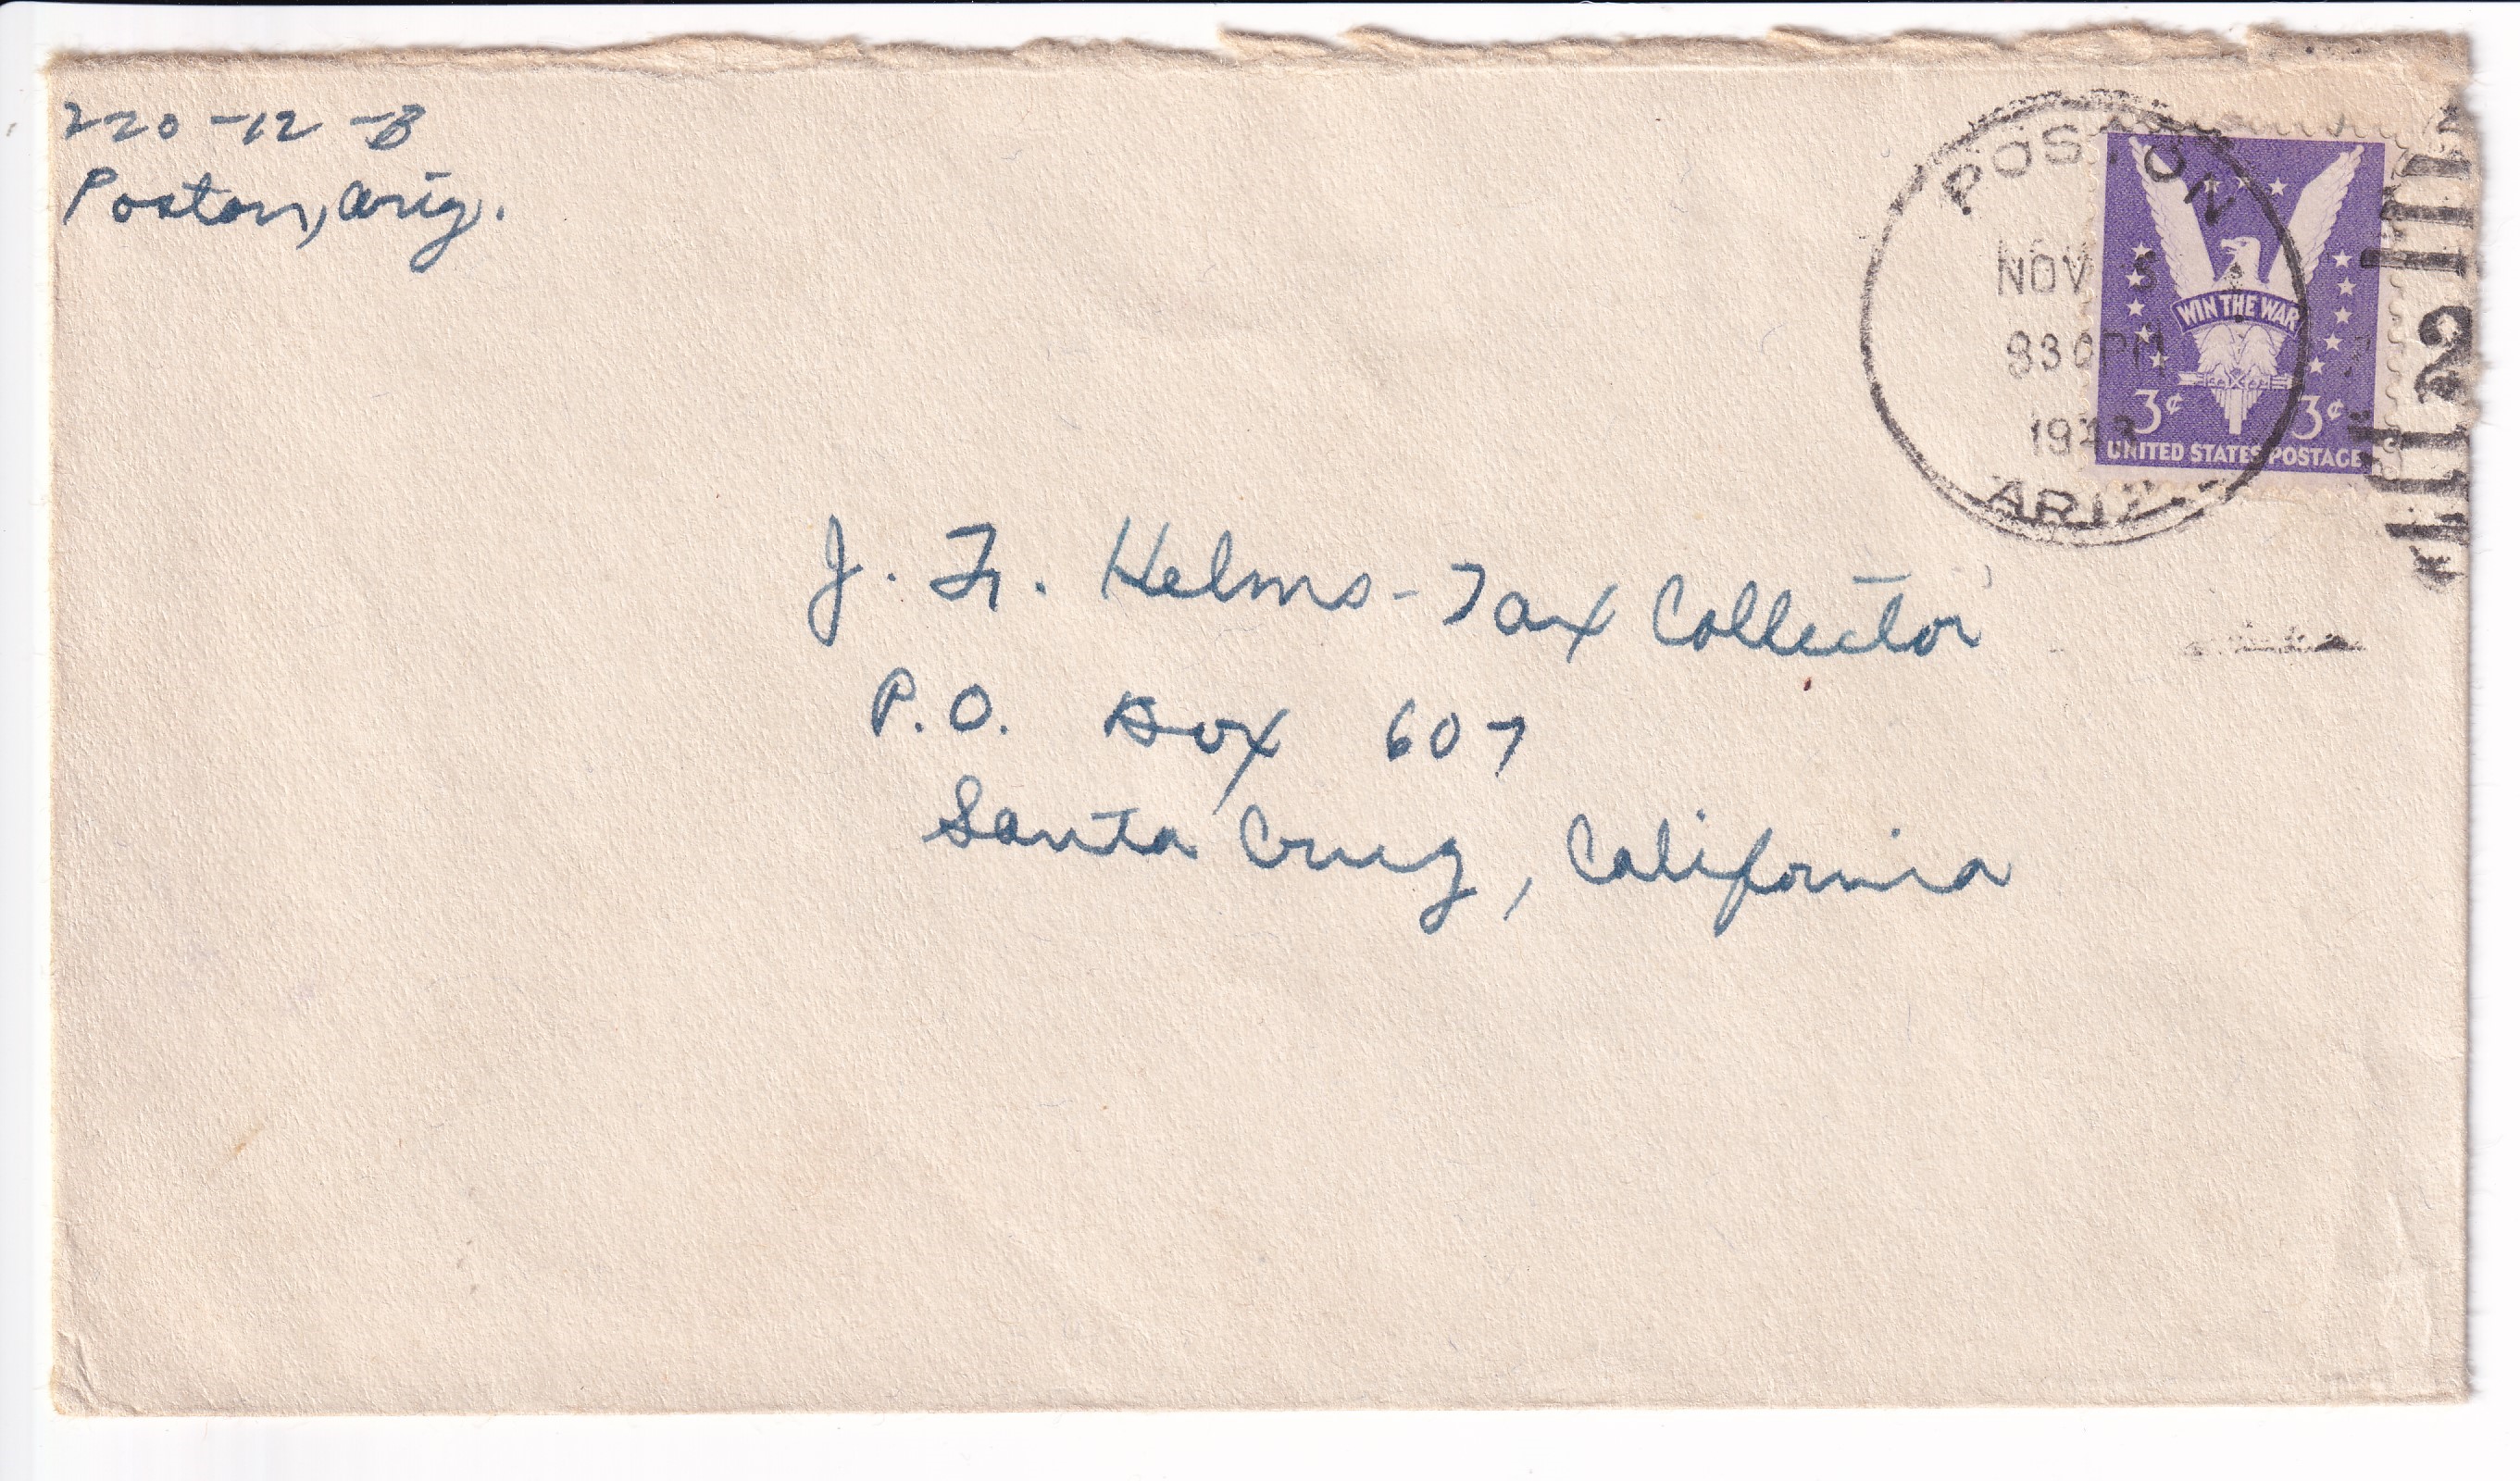 220-12-B
Poston, Ariz.
POSTON
NOV 5
830PM
1943
ARIZ.
2
WIN THE WAR
3¢ 3¢
UNITED STATES POSTAGE
J. Fr. Helms - Tax Collector
P.O. Box 607
Santa Cruz, California